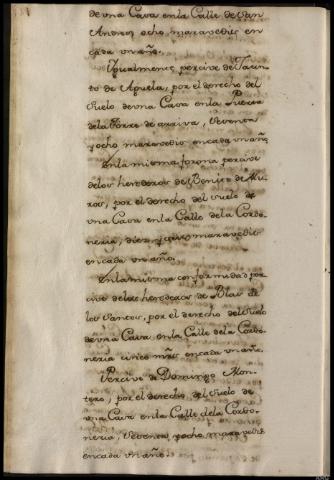 de una Casa en la Calle de San
Andres, ocho maravedis en
cada un año.
Igualmente percive de Jacin-
to de Apuela, por el derecho del
suelo de una Casa en la Puerta
de la Torre de arriva, sesenta
y ocho maravedis en cada un año
En la misma forma percive
de los herederos de Benito de Mu-
ros, por el derecho del suelo de
una Casa en la Calle de la Carbo-
neria, diez y seis maravedis
en cada un año.
En la misma conformidad per-
cive de los herederos de Blas de
los Santos, por el derecho del suelo
de una Casa, en la Calle de la Carbo-
neria cinco mrs en cada un año.
Percive de Domingo Mon-
tero, por el derecho del suelo de
una Casa en la Calle de la Carbo-
neria, sesenta y ocho maravedis
en cada un año.